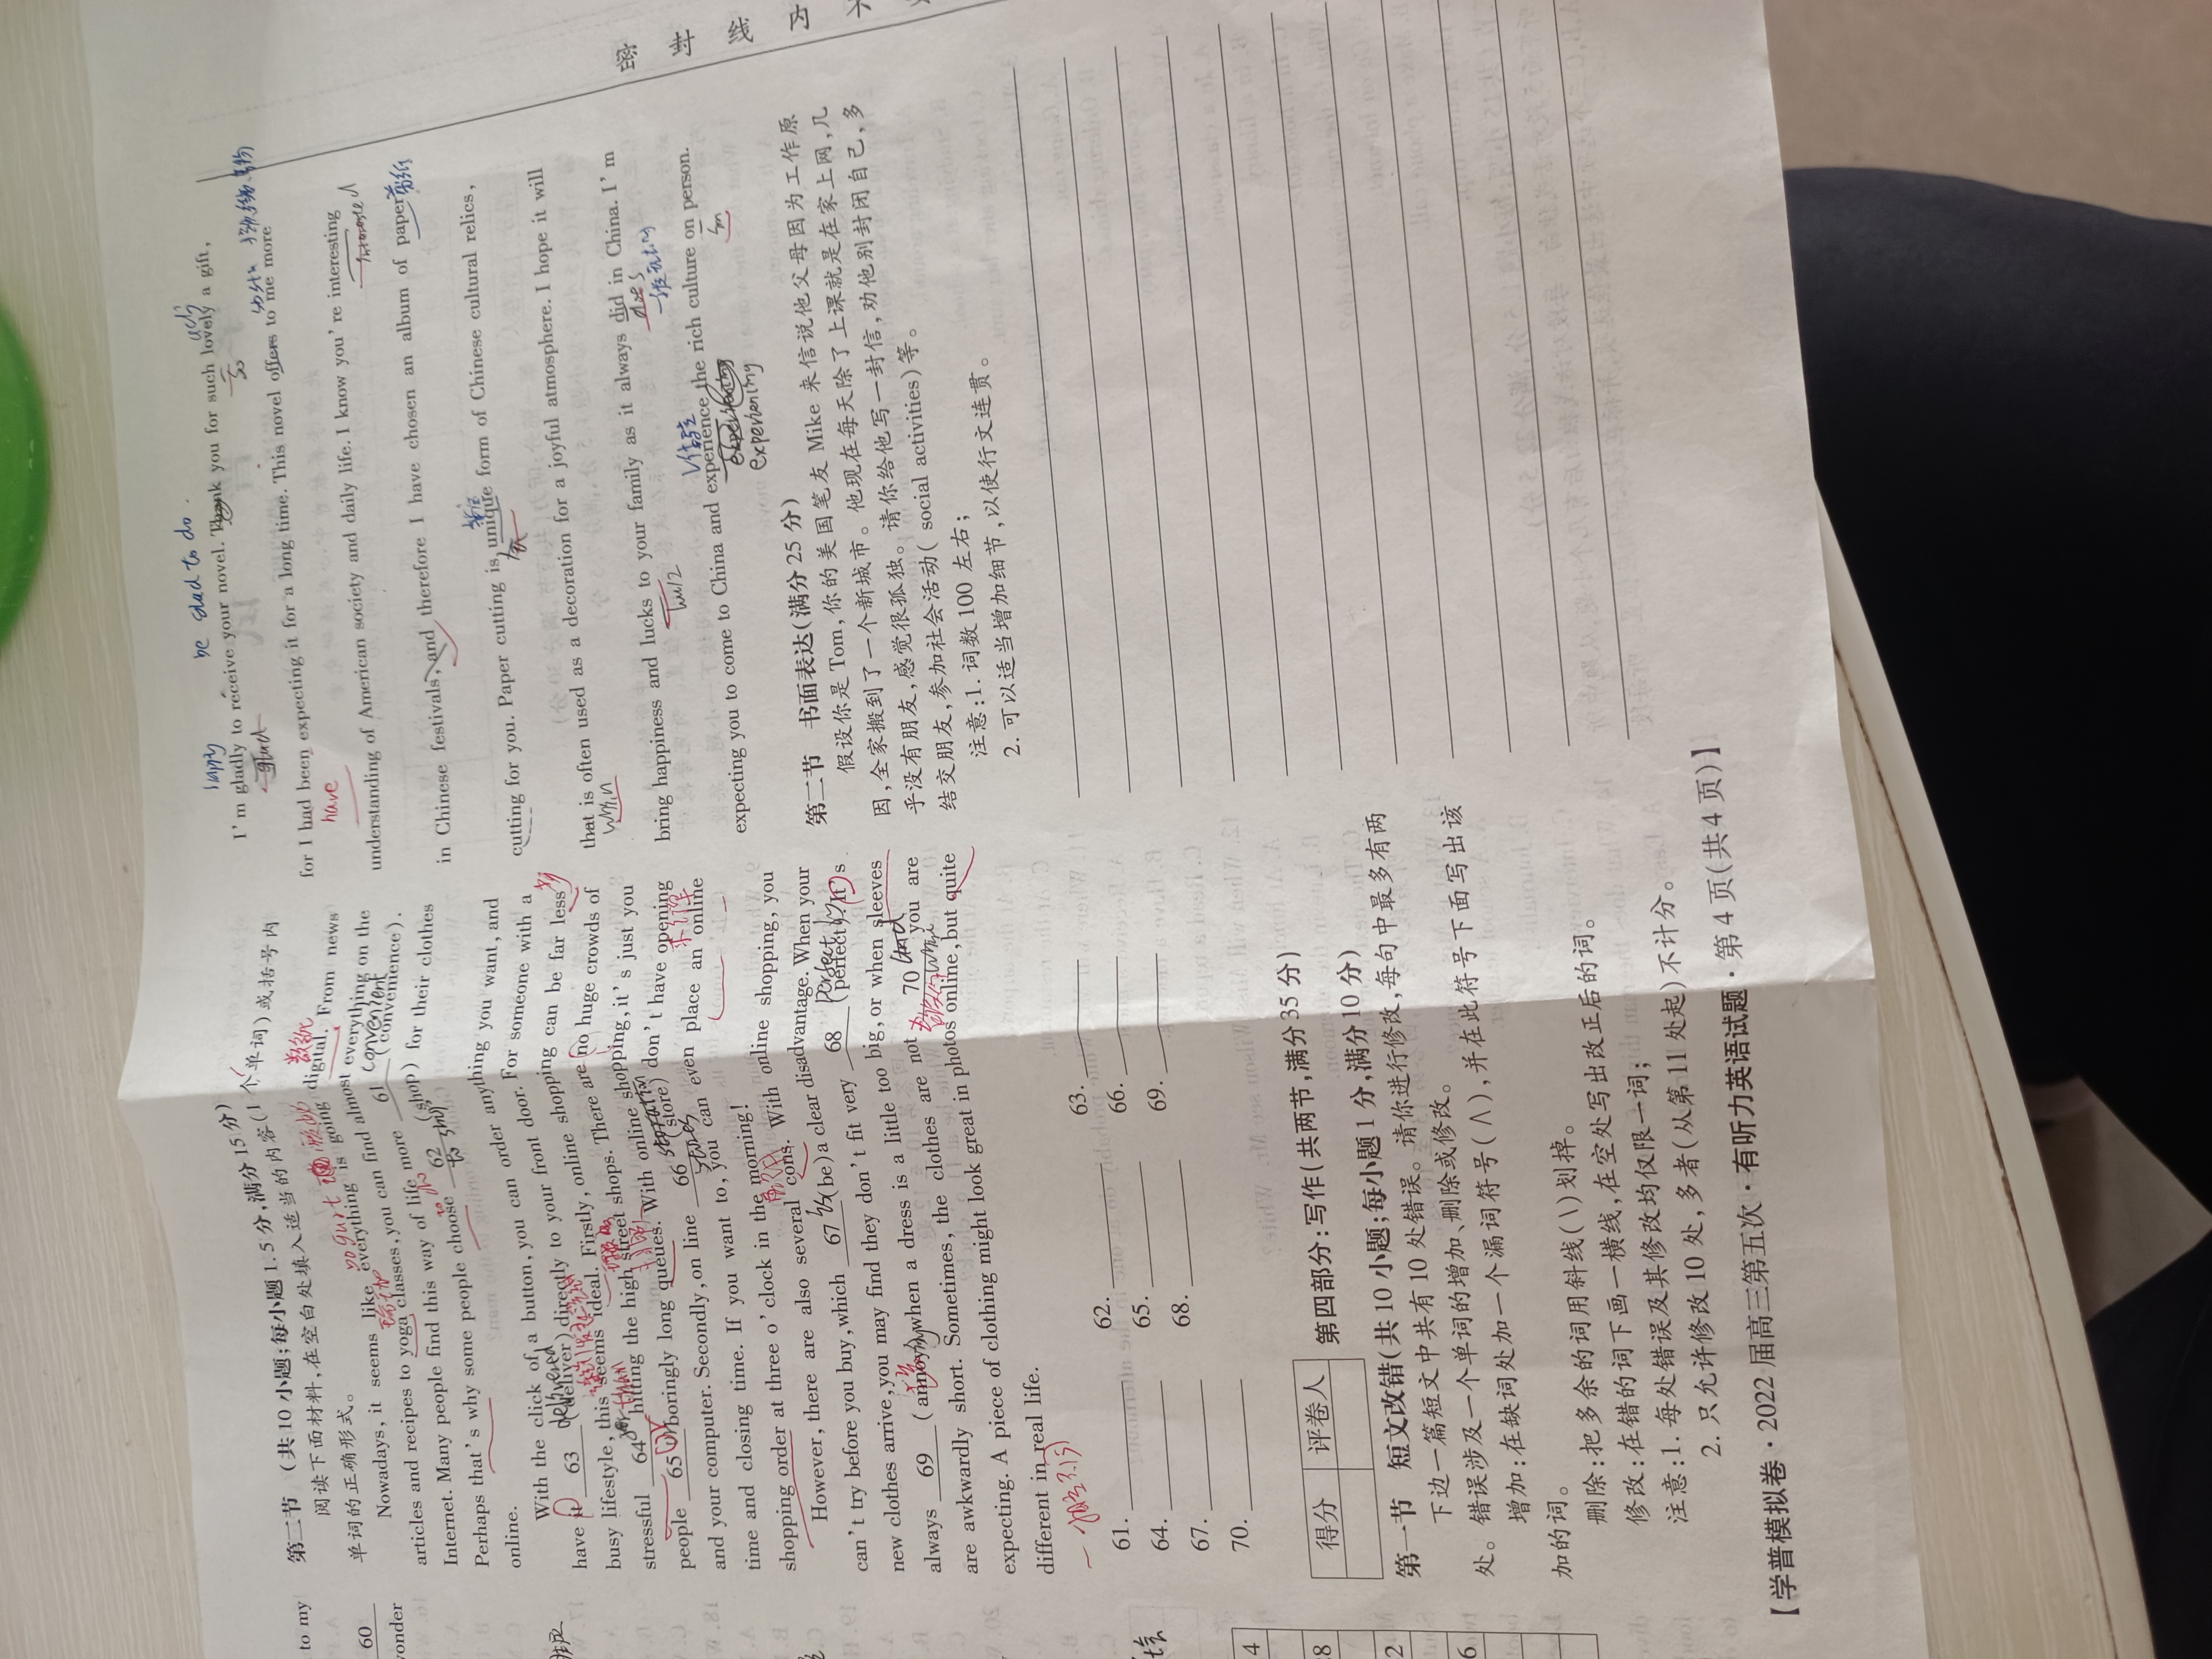 to my
60
wonder
第二节 (共 10 小题;每小题 1.5 分,满分 15 分)
阅读下面材料,在空白处填入适当的内容(1 个单词)或括号内
单词的正确形式。
Nowadays, it seems like everything is going digital. From news
articles and recipes to yoga classes, you can find almost everything on the
Internet. Many people find this way of life more 61 (convenience).
Perhaps that's why some people choose 62 (shop) for their clothes
online.
With the click of a button, you can order anything you want, and
have it 63 (deliver) directly to your front door. For someone with a
busy lifestyle, this seems ideal. Firstly, online shopping can be far less
stressful 64 hitting the high street shops. There are no huge crowds of
people 65 boringly long queues. With online shopping, it's just you
and your computer. Secondly, on line 66 (store) don't have opening
time and closing time. If you want to, you can even place an online
shopping order at three o'clock in the morning!
However, there are also several cons. With online shopping, you
can't try before you buy, which 67 (be) a clear disadvantage. When your
new clothes arrive, you may find they don't fit very 68 (perfect). It's
always 69 (annoy) when a dress is a little too big, or when sleeves
are awkwardly short. Sometimes, the clothes are not 70 you are
expecting. A piece of clothing might look great in photos online, but quite
different in real life.
convenient
to shop
delivered
than
or
stores
is
perfectly
what
数码
瑜伽
yogurt
61. 62. 63.
64. 65. 66.
67. 68. 69.
70.
得分 评卷人
第四部分:写作(共两节,满分 35 分)
第一节 短文改错(共 10 小题;每小题 1 分,满分 10 分)
下边一篇短文中共有 10 处错误。请你进行修改,每句中最多有两
处。错误涉及一个单词的增加、删除或修改。
增加:在缺词处加一个漏词符号(∧),并在此符号下面写出该
加的词。
删除:把多余的词用斜线(\)划掉。
修改:在错的词下画一横线,在空处写出改正后的词。
注意:1. 每处错误及其修改均仅限一词;
2. 只允许修改 10 处,多者(从第 11 处起)不计分。
【学普模拟卷·2022 届高三第五次·有听力英语试题·第 4 页(共 4 页)】
happy be glad to do.
I'm gladly to receive your novel. Thank you for such lovely a gift,
glad so adj
for I had been expecting it for a long time. This novel offers to me more
have
understanding of American society and daily life. I know you're interesting
interested
in Chinese festivals, and therefore I have chosen an album of paper
剪纸
cutting for you. Paper cutting is unique form of Chinese cultural relics,
that is often used as a decoration for a joyful atmosphere. I hope it will
which
bring happiness and lucks to your family as it always did in China. I'm
luck does
expecting you to come to China and experience the rich culture on person.
experiencing in
第二节 书面表达(满分 25 分)
假设你是 Tom,你的美国笔友 Mike 来信说他父母因为工作原
因,全家搬到了一个新城市。他现在每天除了上课就是在家上网,几
乎没有朋友,感觉很孤独。请你给他写一封信,劝他别封闭自己,多
结交朋友,参加社会活动( social activities)等。
注意:1. 词数 100 左右;
2. 可以适当增加细节,以使行文连贯。